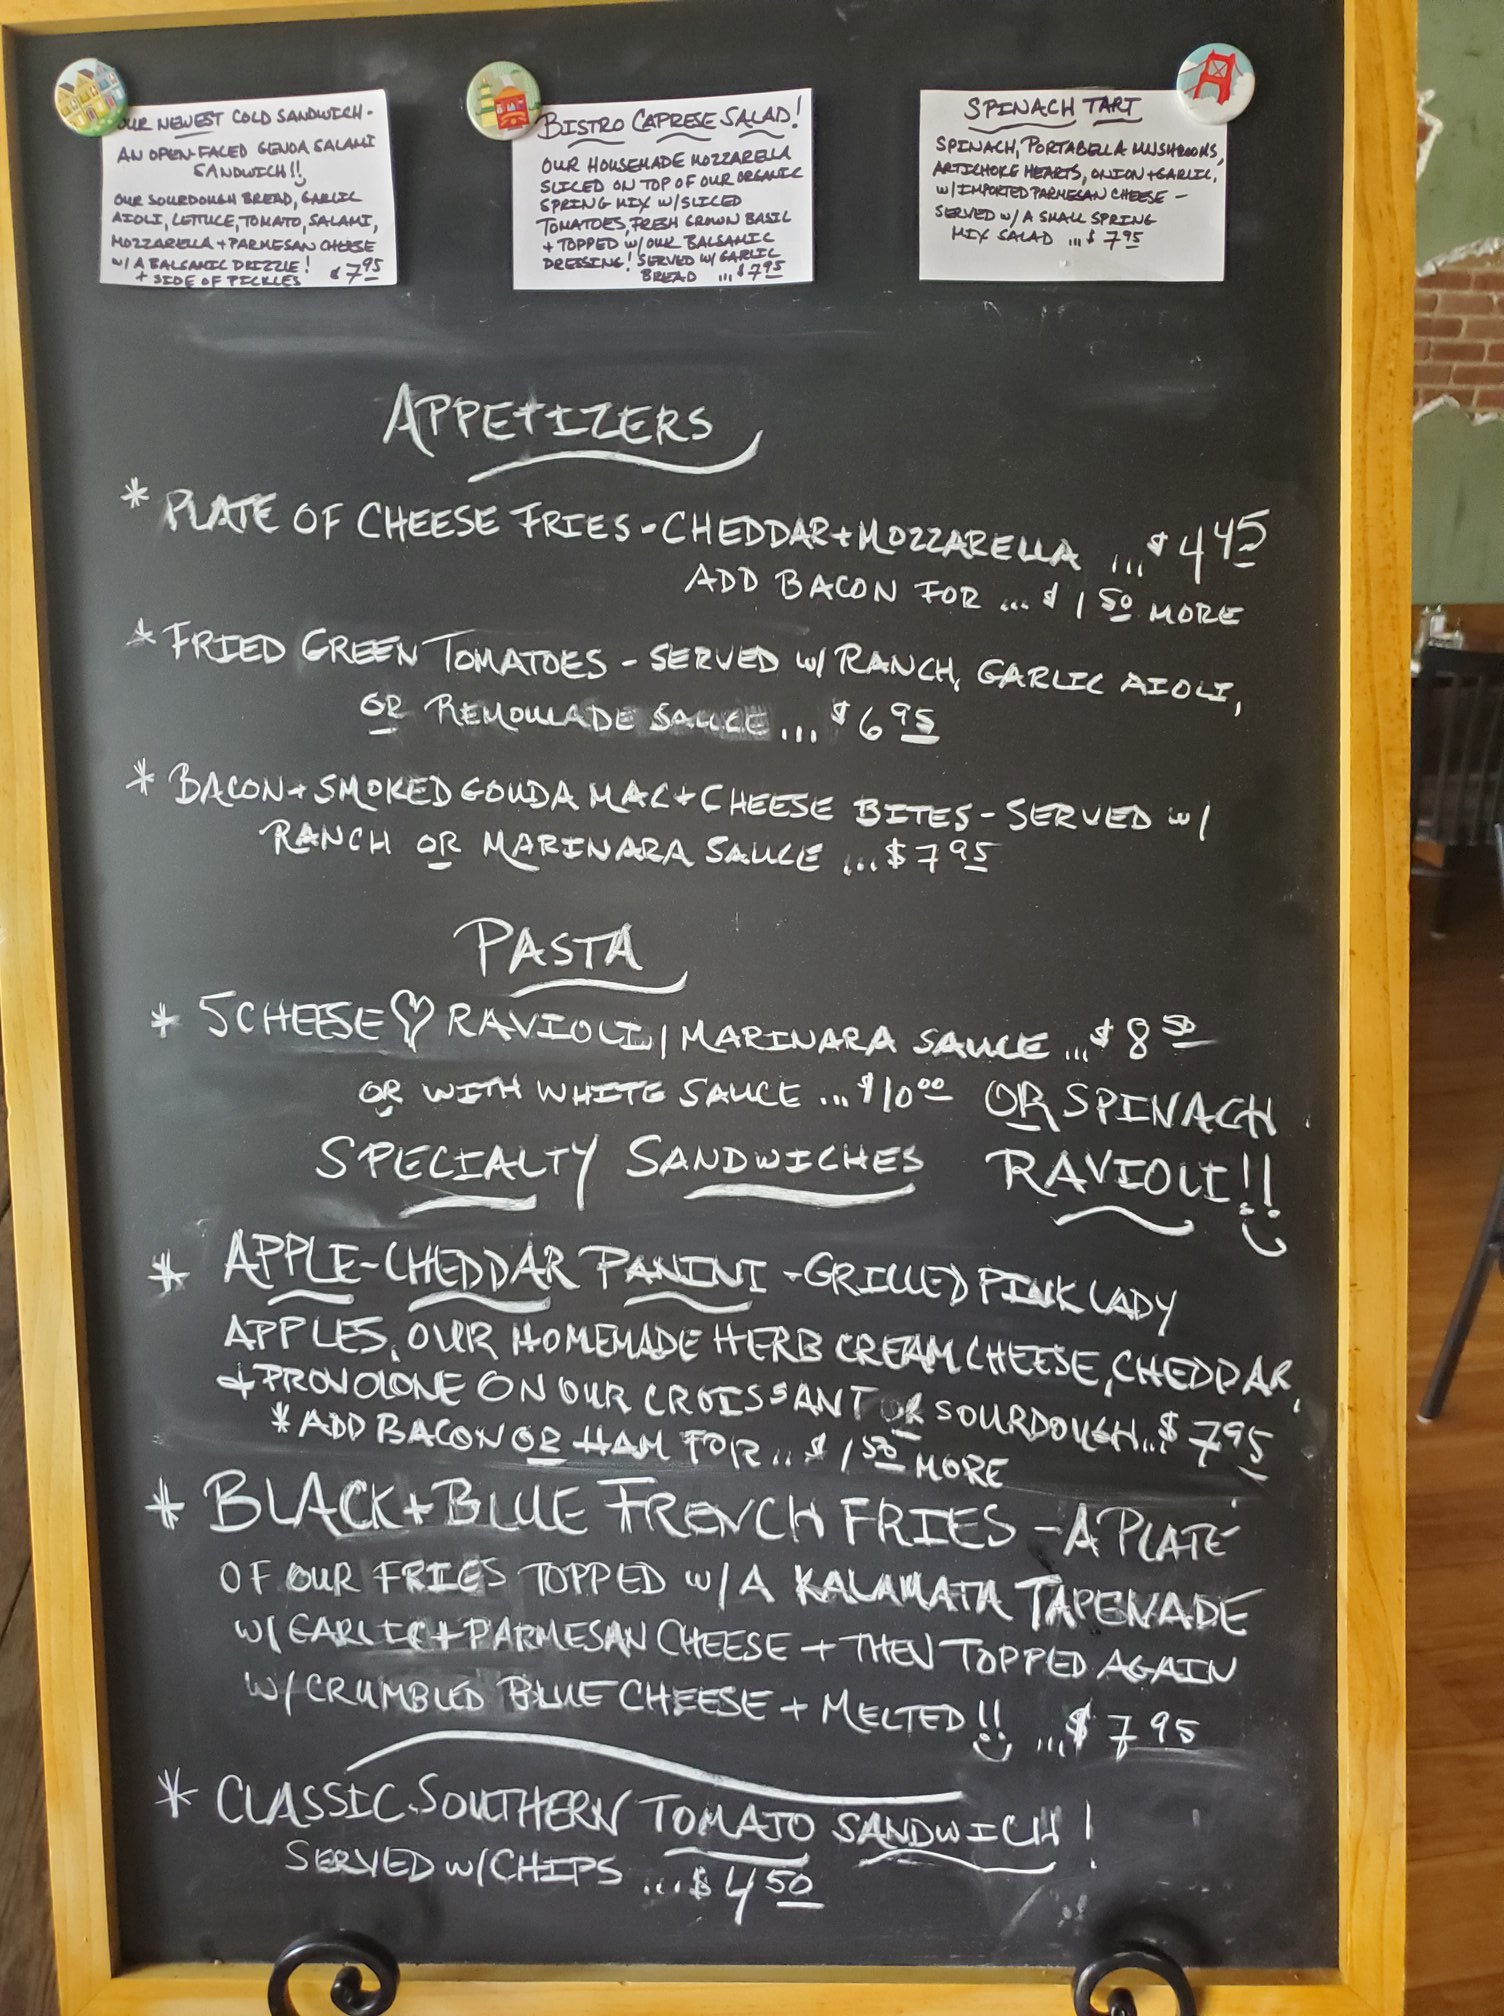 OUR NEWEST COLD SANDWICH -
AN OPEN-FACED GENOA SALAMI
SANDWICH!!
OUR SOURDOUGH BREAD, GARLIC
AIOLI, LETTUCE, TOMATO, SALAMI,
MOZZARELLA + PARMESAN CHEESE
W/ A BALSAMIC DRIZZLE!
+ SIDE OF PICKLES $7.95
BISTRO CAPRESE SALAD!
OUR HOUSEMADE MOZZARELLA
SLICED ON TOP OF OUR ORGANIC
SPRING MIX W/ SLICED
TOMATOES, FRESH GROWN BASIL
+ TOPPED W/ OUR BALSAMIC
DRESSING! SERVED W/ GARLIC
BREAD ...$7.95
SPINACH TART
SPINACH, PORTABELLA MUSHROOMS,
ARTICHOKE HEARTS, ONION + GARLIC,
W/ IMPORTED PARMESAN CHEESE -
SERVED W/ A SMALL SPRING
MIX SALAD ...$7.95
APPETIZERS
* PLATE OF CHEESE FRIES - CHEDDAR + MOZZARELLA ...$4.45
ADD BACON FOR ...$1.50 MORE
* FRIED GREEN TOMATOES - SERVED W/ RANCH, GARLIC AIOLI,
OR REMOULADE SAUCE ...$6.95
* BACON + SMOKED GOUDA MAC + CHEESE BITES - SERVED W/
RANCH OR MARINARA SAUCE ...$7.95
PASTA
* 5 CHEESE ♡ RAVIOLI / MARINARA SAUCE ...$8.50
OR WITH WHITE SAUCE ...$10.00 OR SPINACH
RAVIOLI!!
SPECIALTY SANDWICHES
* APPLE-CHEDDAR PANINI - GRILLED PINK LADY
APPLES, OUR HOMEMADE HERB CREAM CHEESE, CHEDDAR,
+ PROVOLONE ON OUR CROISSANT OR SOURDOUGH...$7.95
* ADD BACON OR HAM FOR...$1.50 MORE
* BLACK + BLUE FRENCH FRIES - A PLATE
OF OUR FRIES TOPPED W/ A KALAMATA TAPENADE
W/ GARLIC + PARMESAN CHEESE + THEN TOPPED AGAIN
W/ CRUMBLED BLUE CHEESE + MELTED!! ...$7.95
* CLASSIC SOUTHERN TOMATO SANDWICH!
SERVED W/ CHIPS ...$4.50